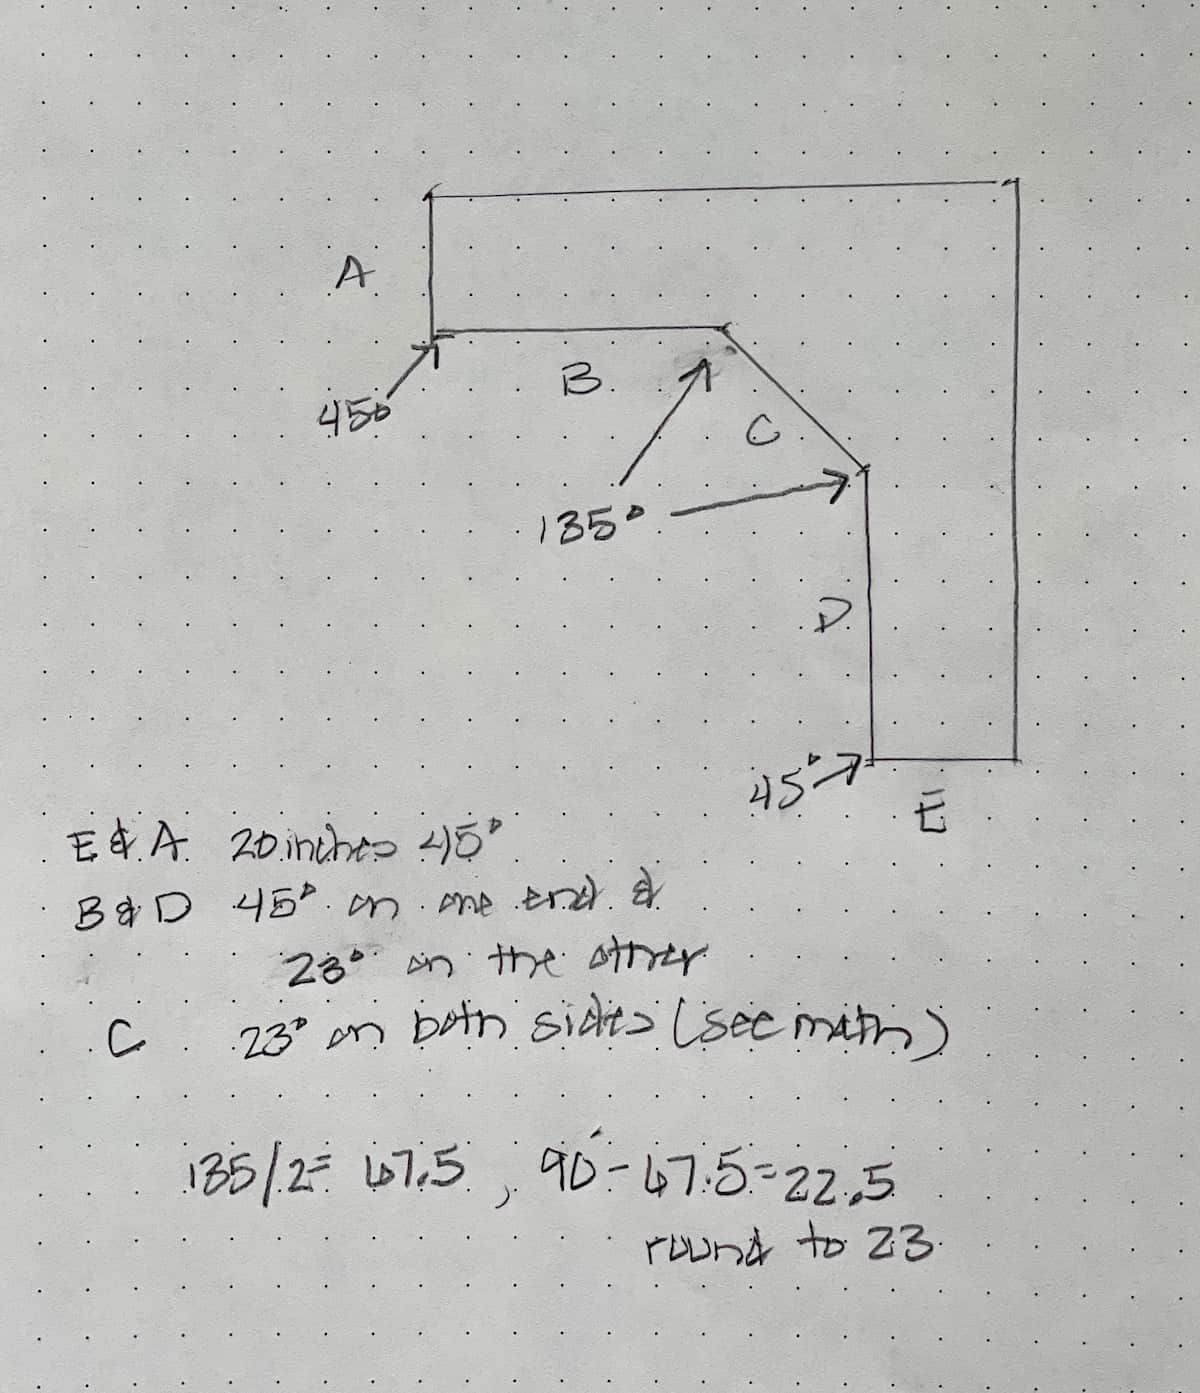 A
B
45°
C
135°
D
45°
E
E & A 20 inches 45°
B & D 45° on one end &
23° on the other
C 23° on both sides (see math)
135/2= 67.5, 90-67.5=22.5
round to 23